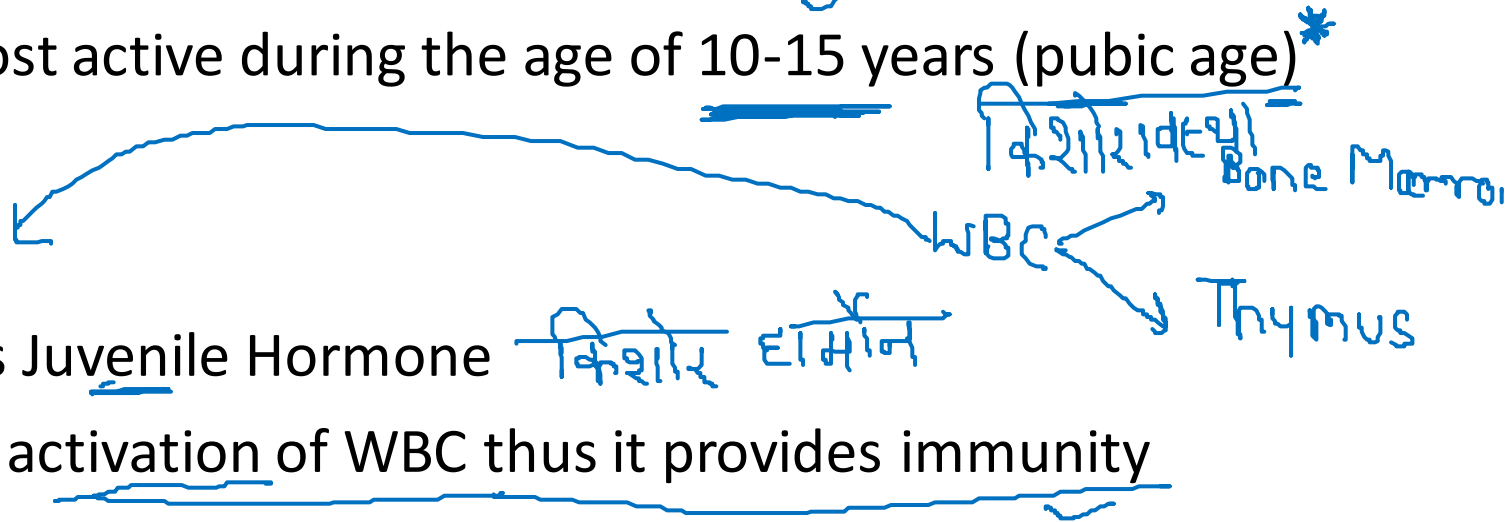 ost active during the age of 10-15 years (pubic age)*
किशोरावस्था
Bone Marro
WBC
Thymus
s Juvenile Hormone किशोर हार्मोन
activation of WBC thus it provides immunity